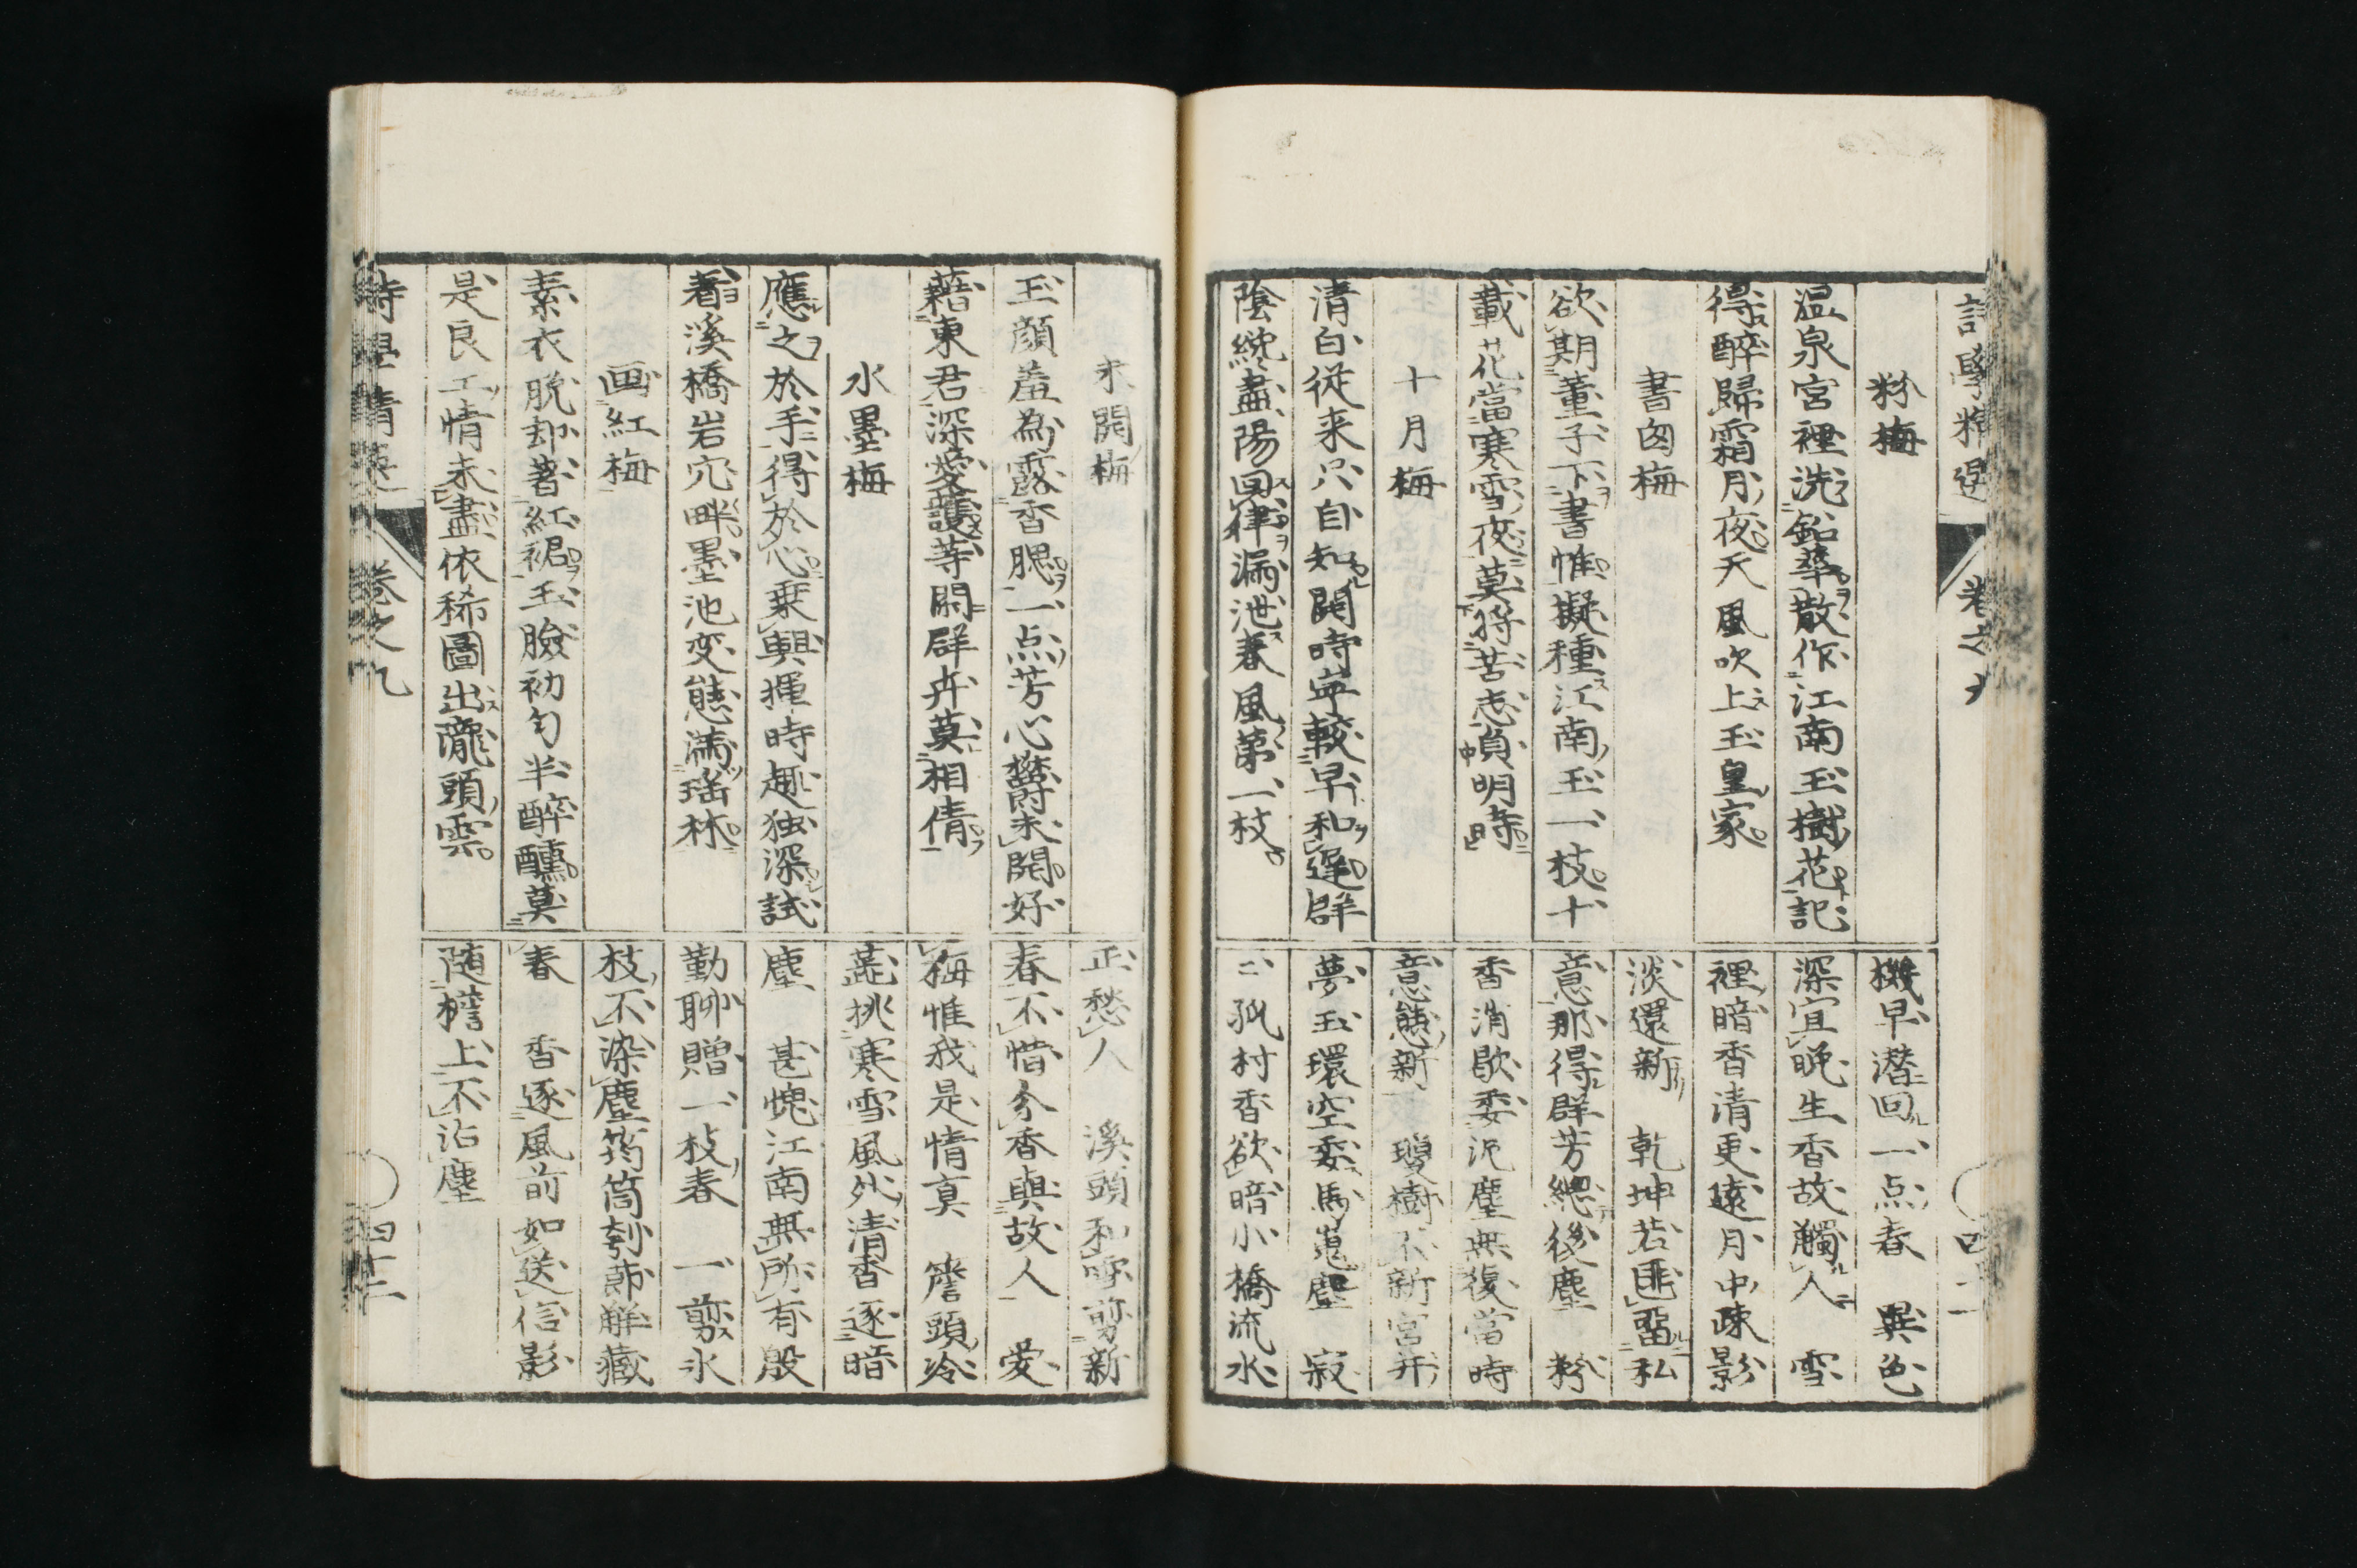 粉梅
温泉宮裡洗鉛華散作江南玉樹花記
得醉歸霜月夜天風吹上玉皇家
書囪梅
欲期董子下書惟擬種江南玉一枝十
載花當寒雪夜莫将苦志負明時
十月梅
清白從来只自知開時寧較早和遲群
陰纔盡陽回律漏泄春風第一枝
機早潜回一点春 異色
深宜晩生香故觸人 雪
裡暗香清更遠月中疎影
淡還新 乾坤若匪畱私
意那得群芳緫後塵 粉
香消歇委泥塵無復當時
意態新 瓊樹不新宮井
夢玉環空委馬嵬塵 寂
〻孤村香欲暗小橋流水
未開梅
玉顔羞為露香腮一点芳心欝未開好
藉東君深愛護等閑群卉莫相倩
水墨梅
應之於手得於心乗興揮時趣独深試
看溪橋岩穴畔墨池変態満瑶林
画紅梅
素衣脱却著紅裙玉臉初匀半醉醺莫
是良工情未盡依稀圖出隴頭雲
正愁人 溪頭和雪剪新
春不惜分香與故人 愛
梅惟我是情真 簷頭冷
蘂挑寒雪風外清香逐暗
塵 甚愧江南無所有殷
勤聊贈一枝春 一剪氷
枝不染塵筠筒刳節觧藏
春 香逐風前如送信影
随檐上不沾塵
詩學精選 卷之九